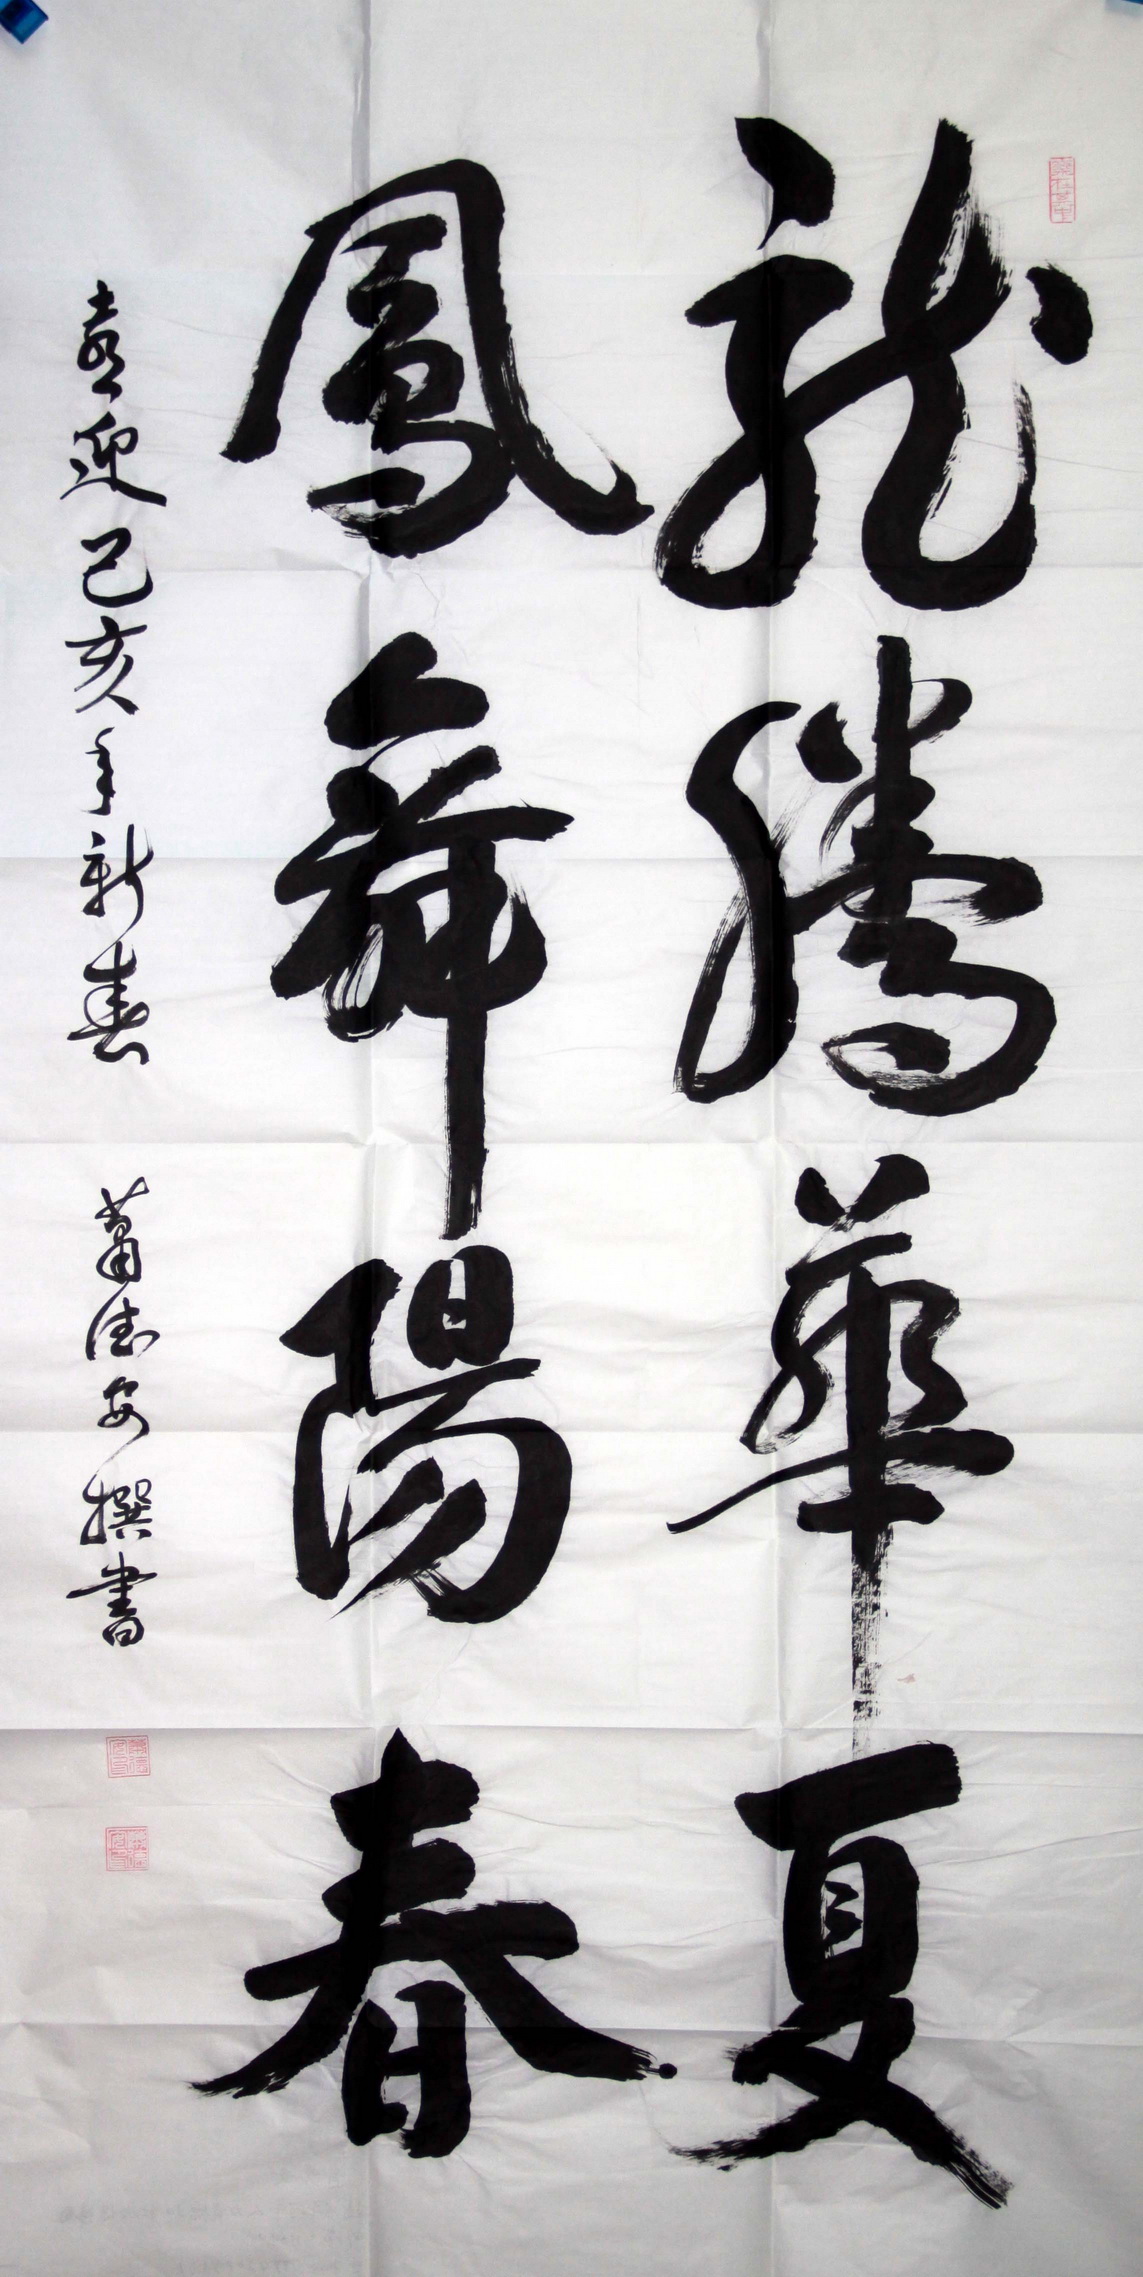 龍騰華夏
鳳舞陽春
喜迎己亥年新春 蕭德安撰書